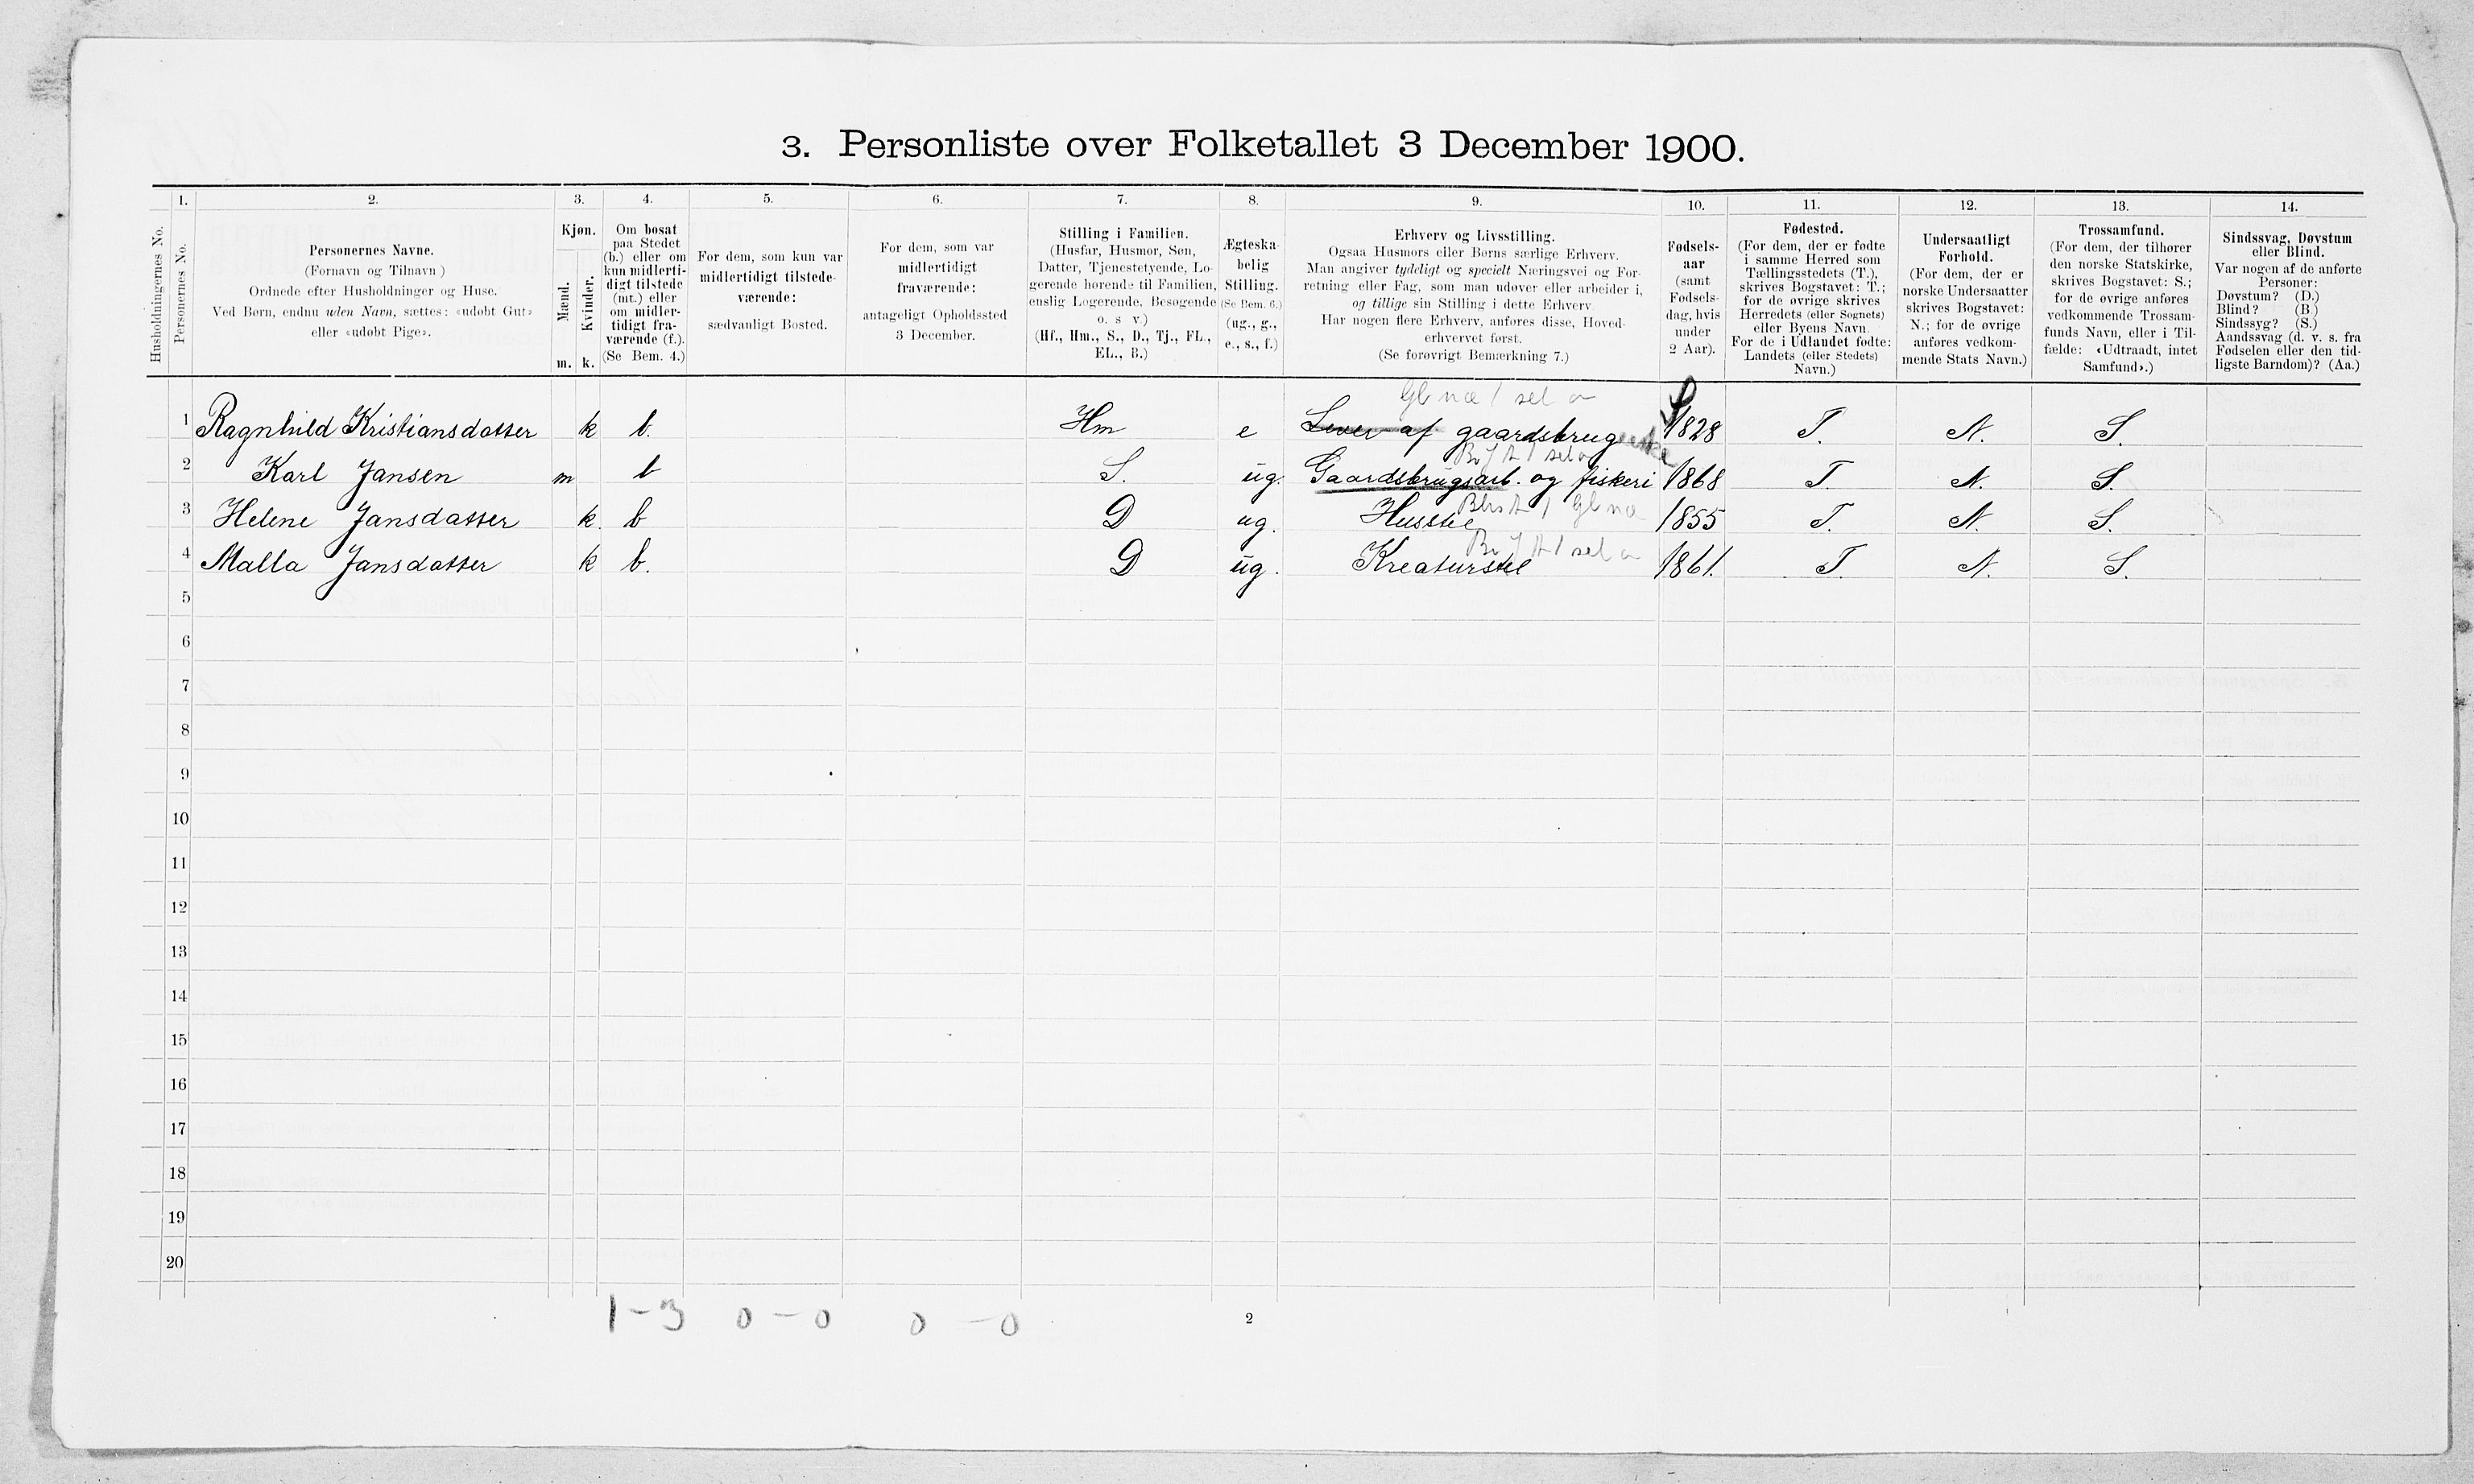 3. Personliste over Folketallet 3 December 1900.
Husholdningernes No.
1.
Personernes No.
2.
Personernes Navne.
(Fornavn og Tilnavn )
Ordnede efter Husholdninger og Huse.
Ved Børn, endnu uden Navn, sættes: «udøbt Gut»
eller «udøbt Pige».
3.
Kjøn.
Mænd.
Kvinder.
m. k.
4.
Om bosat
paa Stedet
(b.) eller om
kun midlerti-
digt tilstede
(mt.) eller
om midler-
tidigt fra-
værende (f.).
(Se Bem. 4.)
5.
For dem, som kun var
midlertidigt tilstede-
værende:
sædvanligt Bosted.
6.
For dem, som var
midlertidigt
fraværende:
antageligt Opholdssted
3 December.
7.
Stilling i Familien.
(Husfar, Husmor, Søn,
Datter, Tjenestetyende, Lo-
gerende hørende til Familien,
enslig Logerende, Besøgende
o. s v.)
(Hf., Hm., S., D., Tj., FL.,
EL., B.)
8.
Ægteska-
belig
Stilling.
(Se Bem. 6.)
(ug., g.,
e., s., f.)
9.
Erhverv og Livsstilling.
Ogsaa Husmors eller Børns særlige Erhverv.
Man angiver tydeligt og specielt Næringsvei og For-
retning eller Fag, som man udøver eller arbeider i,
og tillige sin Stilling i dette Erhverv
Har nogen flere Erhverv, anføres disse, Hoved-
erhvervet først.
(Se forøvrigt Bemærkning 7.)
10.
Fødsels-
aar
(samt
Fødsels-
dag, hvis
under
2 Aar).
11.
Fødested.
(For dem, der er fødte
i samme Herred som
Tællingsstedets (T.),
skrives Bogstavet: T.;
for de øvrige skrives
Herredets (eller Sognets)
eller Byens Navn.
For de i Udlandet fødte:
Landets (eller Stedets)
Navn.)
12.
Undersaatligt
Forhold.
(For dem, der er
norske Undersaatter
skrives Bogstavet:
N.; for de øvrige
anføres vedkom-
mende Stats Navn.)
13.
Trossamfund.
(For dem, der tilhører
den norske Statskirke,
skrives Bogstavet: S.;
for de øvrige anføres
vedkommende Trossam-
funds Navn, eller i Til-
fælde: «Udtraadt, intet
Samfund».)
14.
Sindssvag, Døvstum
eller Blind.
Var nogen af de anførte
Personer:
Døvstum? (D.)
Blind? (B.)
Sindssyg? (S.)
Aandssvag (d. v. s. fra
Fødselen eller den tid-
ligste Barndom)? (Aa.)
1 Ragnhild Kristiansdatter k b. Hm e Lever af gaardsbrug 1828 T. N. S.
2 Karl Jansen m b S. ug. Gaardsbrugsarb. og fiskeri 1868 T. N. S.
3 Helene Jansdatter k. b D ug. Husstel 1855 T. N. S.
4 Malla Jansdatter k b. D ug. Kreaturstel 1861. T. N. S.
5
6
7
8
9
10
11
12
13
14
15
16
17
18
19
20
1 - 3 0 - 0 0 - 0
2